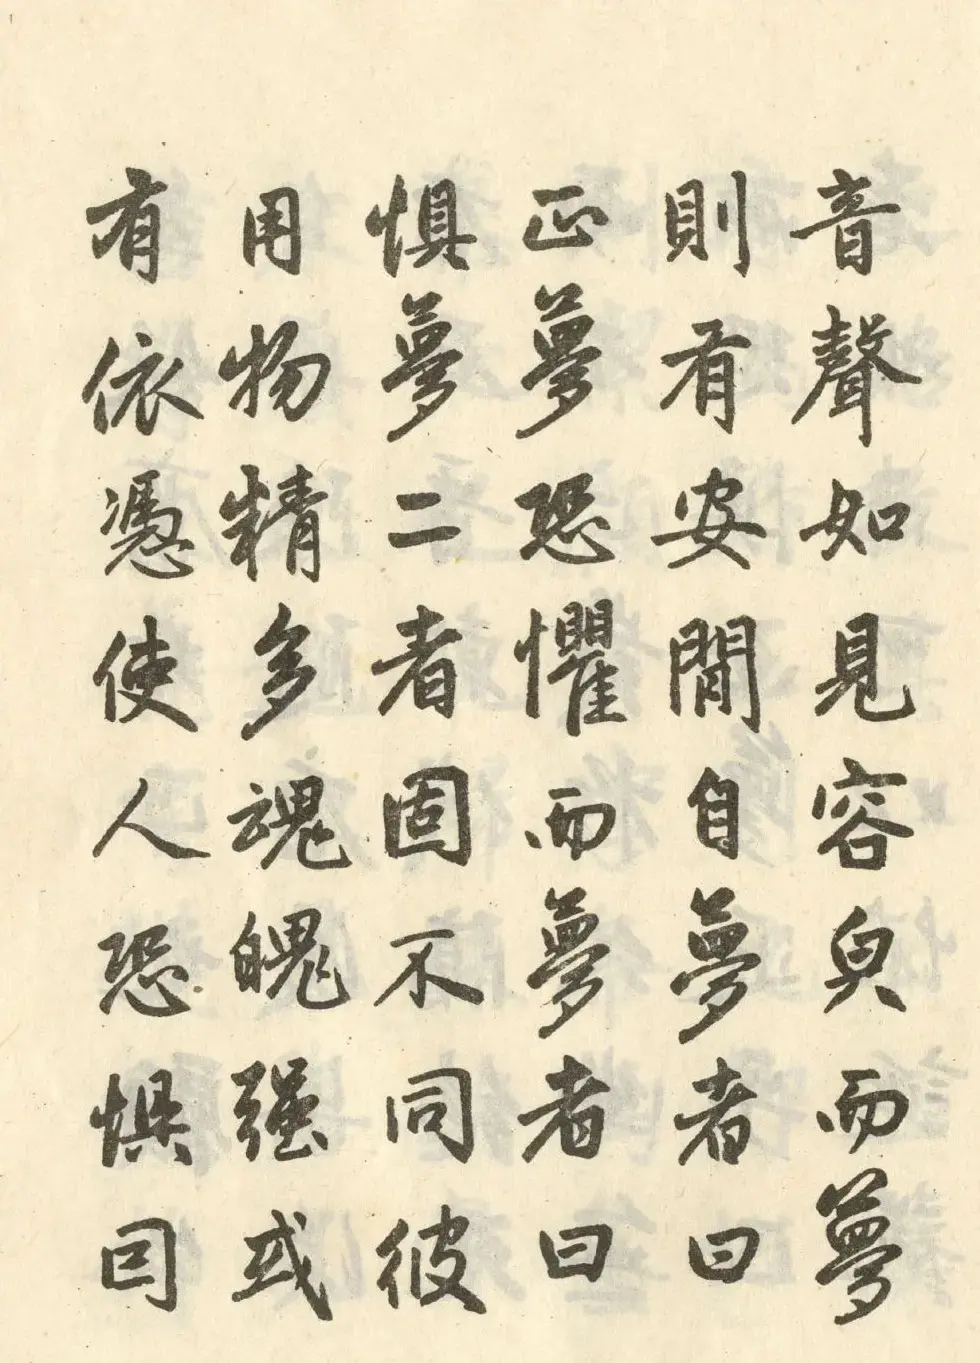 音聲如見容臾而夢
則有安閒自夢者曰
正夢恐懼而夢者曰
惧夢二者固不同彼
用物精多魂魄强或
有依憑使人恐惧因